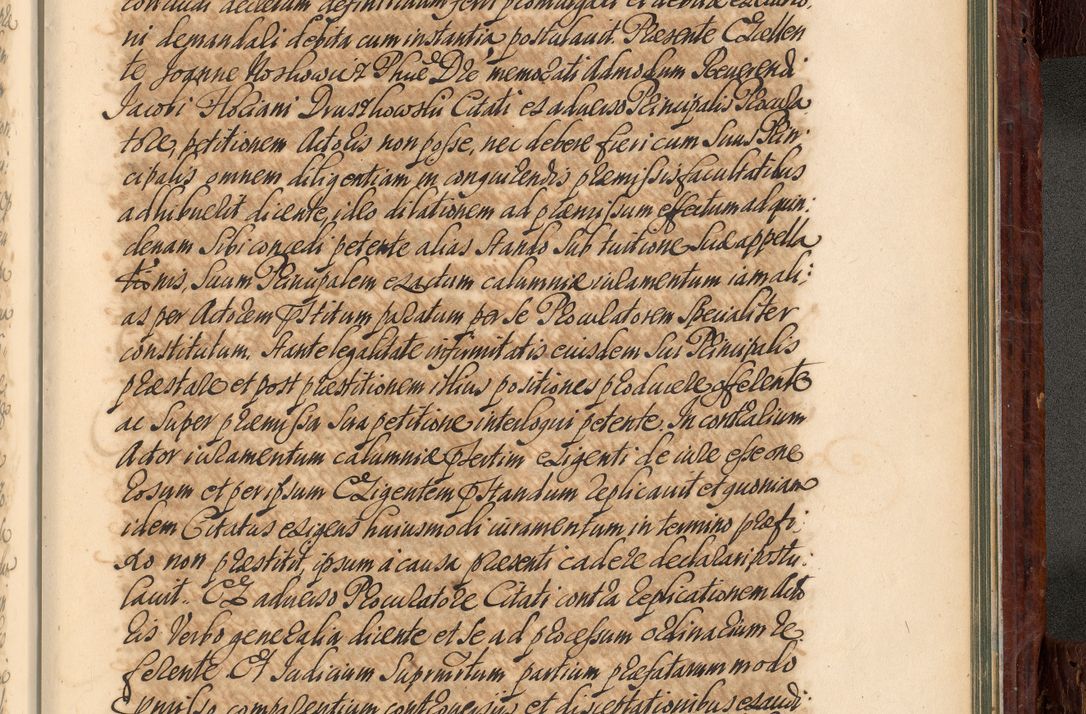 concludi decretum definitivum ferri promulgari et debitæ executio,
ni demandali debita cum instantia postulavit. Præsente Excellen
te Joanne Phiæ Dre memorati Admodum Reverendi
Jacobi Floriani Druszkowski Citati ex adverso Principalis Procula
tore, petitionem Actoris non posse, nec debere fieri cum Suus Prin:
cipalis omnem diligentiam in conquirendis præmissis facultatibus
adhibuerit dicente, ideo dilationem ad præmissum effectum ad quin:
denam Sibi concedi petente alias Stando Sub tuitione Suæ appella
tionis, Suum Principalem exactum calumniæ iuramentum iam ali:
as per Actorem pstitum paratum per Se Procuratorem Specialiter
constitutum, Stante legalitate infirmitatis eiusdem Sui Principalis
præstare et post præstitionem illius positiones producere offerente
ac Super præmissa Sua petitione interloqui petente. In contrarium
Actor iuramentum calumniæ psertim exigenti de iure esse one
rosum et per ipsum Exigentem pstandum replicavit et quoniam
idem Citatus exigens huiusmodi iuramentum in termino præfi:
xo non præstitit, ipsum a causa præsenti cadere declarari postu:
lavit. Ex adverso Procuratore Citati contra replicationem Acto
ris Verbo generalia dicente et Se ad processum ordinarium re
ferente Et Judicium Supmitum partium præfatarum modo
præmisso comparentium controversiis et discertationibus exaudi: